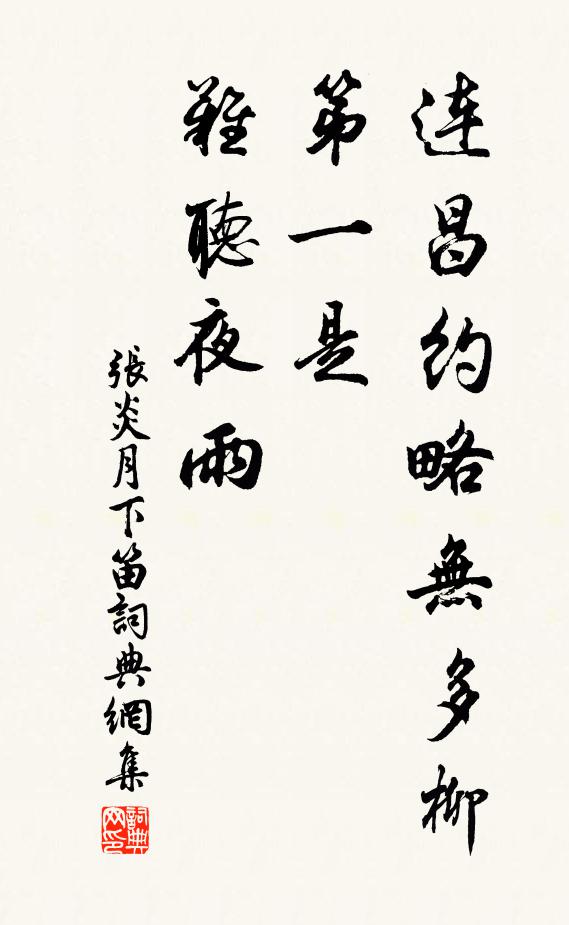 連昌約略無多柳
第一是
難聽夜雨
張炎月下笛詞典網集
詞典
网印